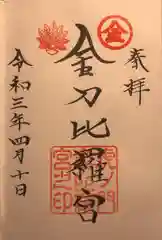 奉拝
金刀比羅宮
令和三年四月十日